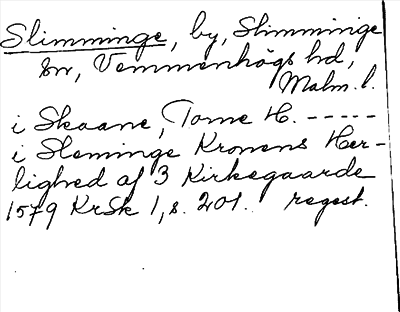 Slimminge, by, Slimminge
sn, Vemmenhögs hd,
Malm. l.
i Skaane, Torne H. -----
i Sleminge Kronens Her-
lighed af 3 Kirkegaarde
1579 KrSk 1, s. 201. regest.